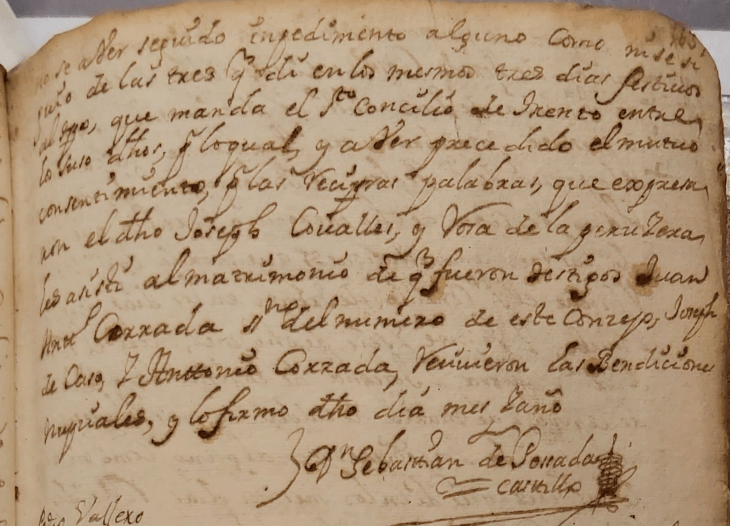 no se aver seguido inpedimento alguno como ni se si
guio de las tres q̃ di en los mesmos tres dias festivos
al ofro, que manda el Sto Concilio de Trento entre
lo suso dhos, p lo qual, y aver precedido el mutuo
consentimiento, p las recipras palabras, que expresa
ron el dho Joseph Covalles, y Rosa de la peruyera
les asisti al matrimonio de q̃ fueron testigos Juan
Antt.º Corrada ssno del numero de este Conzejo, Joseph
de Caso, Y Anttonio Corrada, recivieron las Bendiciones
nupciales, y lo firmo dho dia mes Y año
Dn Sebastian de Possada
Castillo
Vallexo